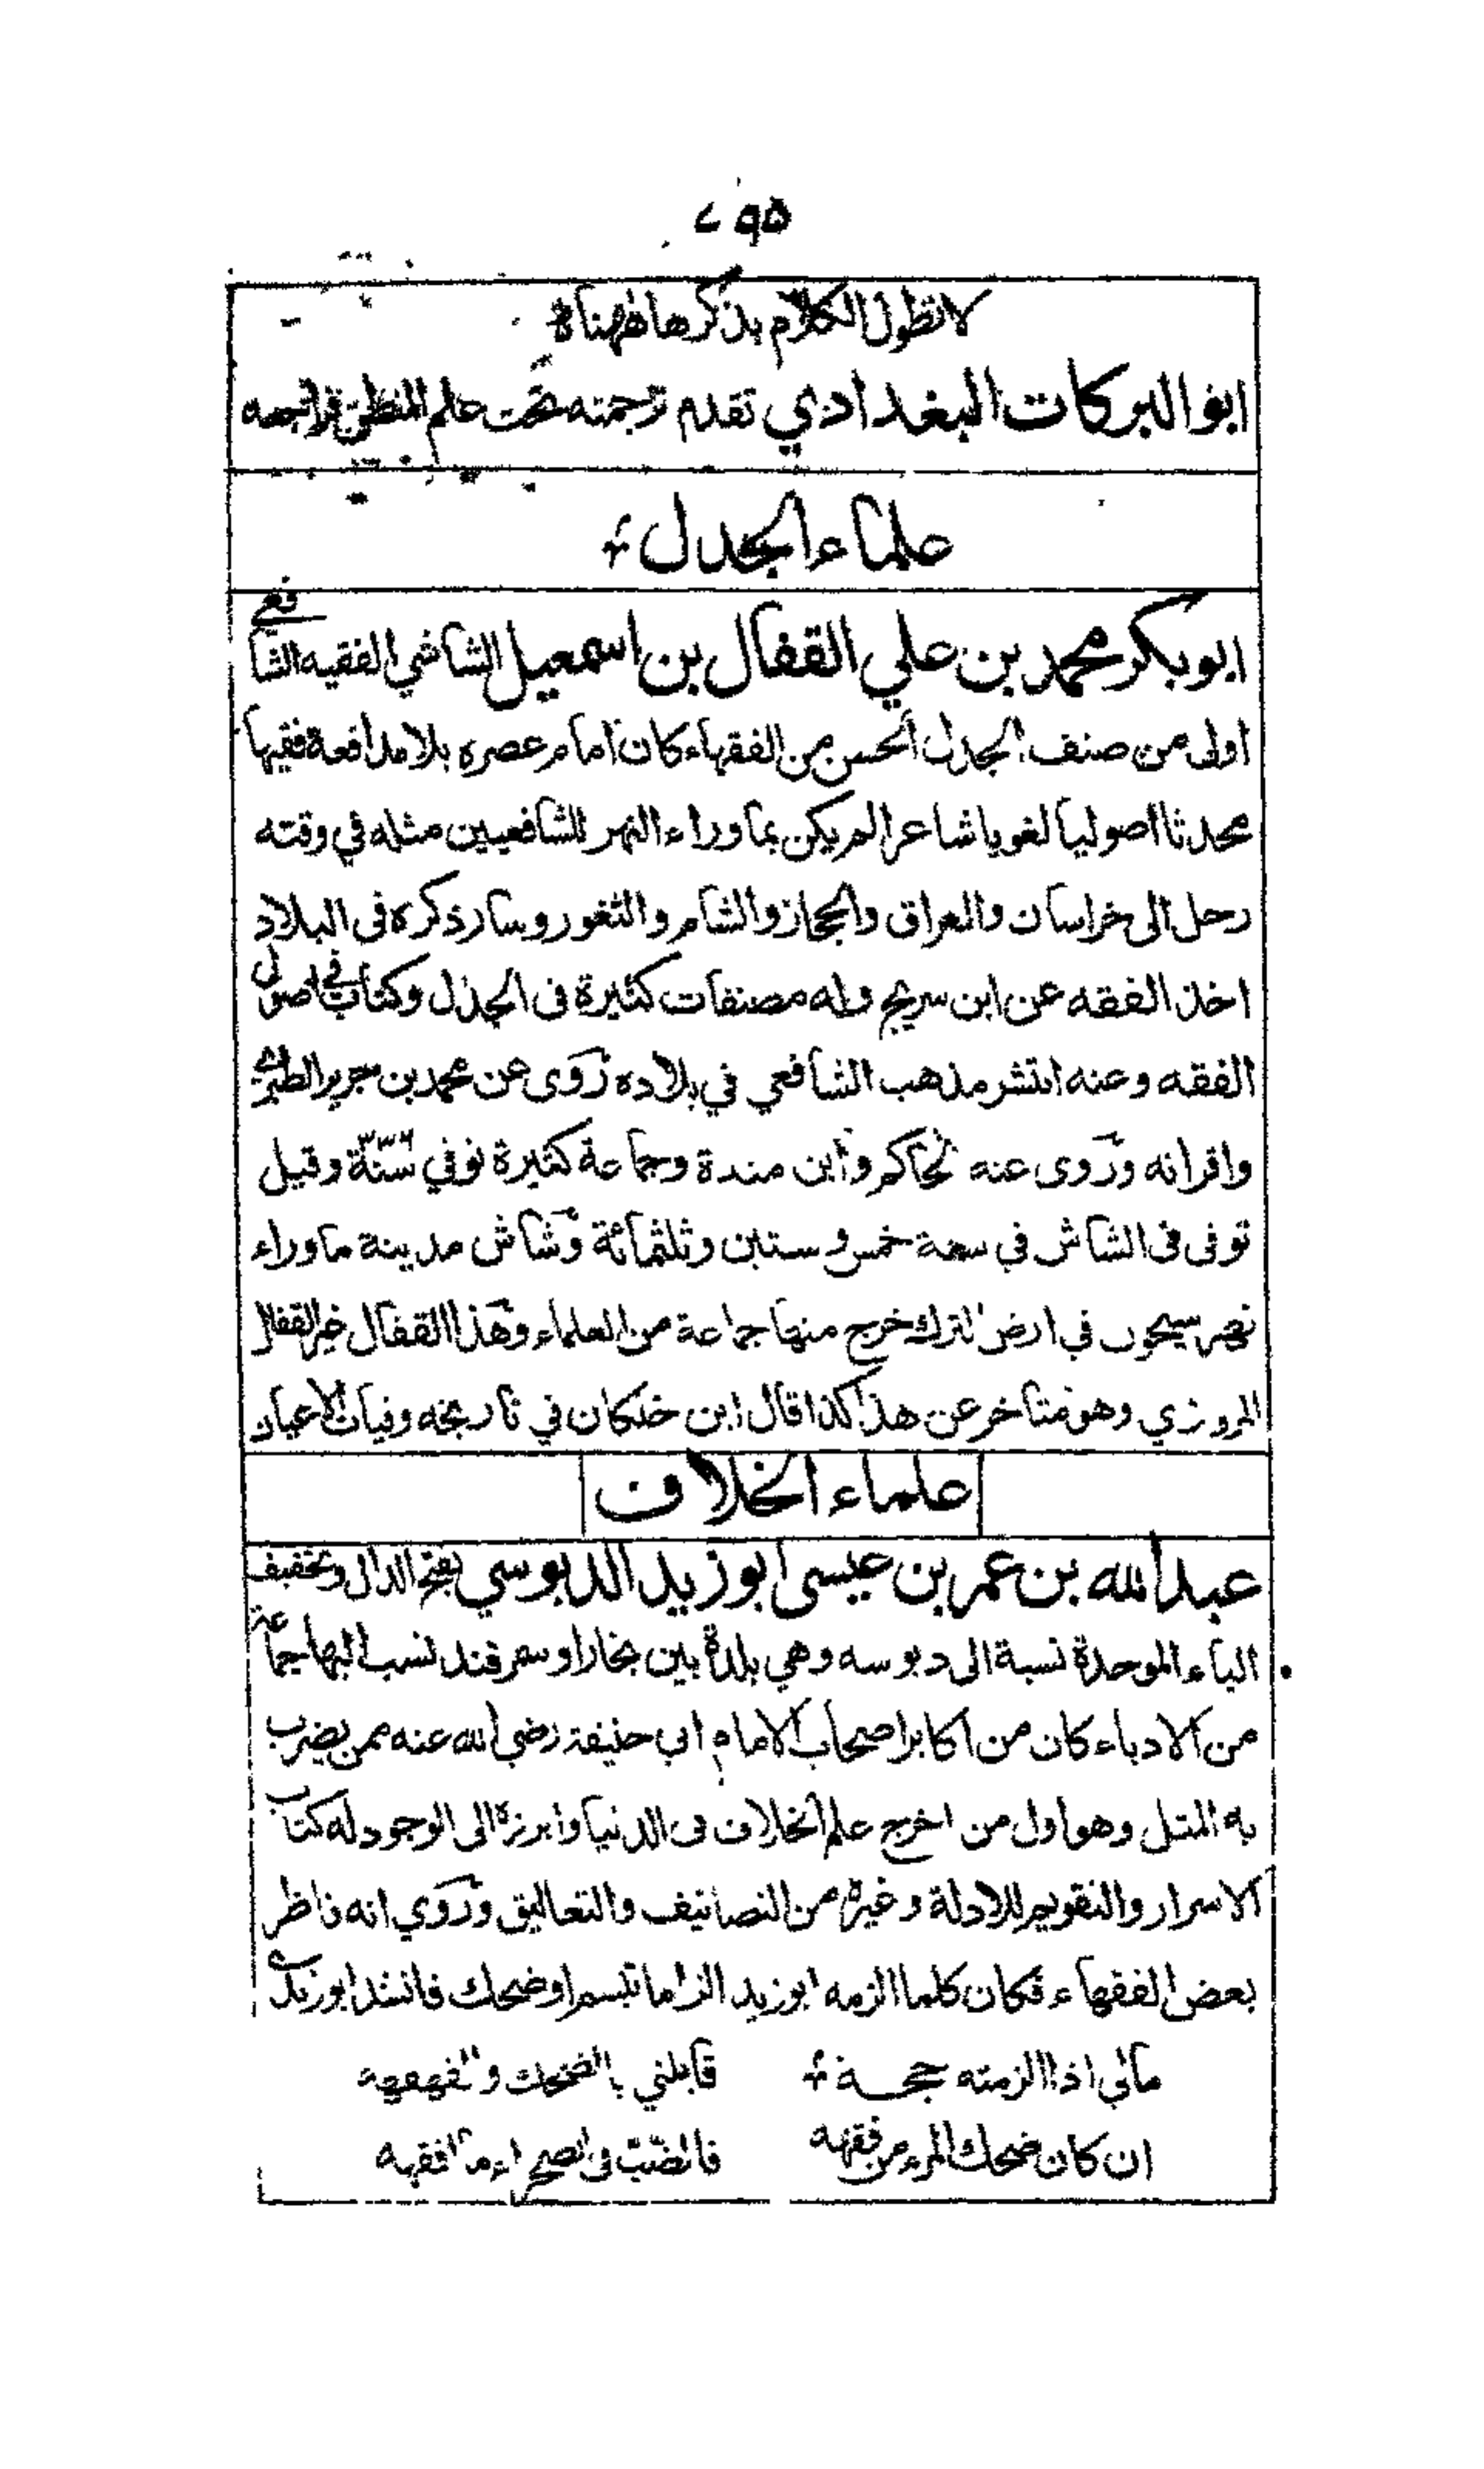 لا نطول الكلام بذكرها ههنا
ابو البركات البغدادي تقدم ترجمته تحت علم المنطق فراجعه
علماء الجدل
ابو بكر محمد بن علي القفال بن اسمعيل الشاشي الفقيه الشافعي
اولى من صنف الجدل الحسن من الفقهاء كان امام عصره بلا مدافعة فقيها
محدثا اصوليا لغويا شاعرا لم يكن بما وراء النهر للشافعيين مثله في وقته
رحل الى خراسان والعراق والحجاز والشام والثغور وسار ذكره فى البلاد
اخذ الفقه عن ابن سريج وله مصنفات كثيرة فى الجدل وكتاب في اصول
الفقه وعنه انتشر مذهب الشافعي في بلاده روى عن محمد بن جرير الطبري
واقرانه وروى عنه الحاكم وابن مندة وجماعة كثيرة توفي وقيل
توفى فى الشاش في سنة خمس وستين وثلثمائة وشاش مدينة ما وراء
نهر سيحون في ارض الترك خرج منها جماعة من العلماء وهذا القفال غير القفال
المروزي وهو متاخر عن هذا كذا قال ابن خلكان في تاريخه وفيات الاعيان
علماء الخلاف
عبد الله بن عمر بن عيسى ابو زيد الدبوسي بفتح الدال وتخفيف
الباء الموحدة نسبة الى دبوسه وهي بلدة بين بخارا وسمرقند نسب اليها جماعة
من الادباء كان من اكابر اصحاب الامام ابي حنيفة رضي الله عنه ممن يضرب
به المثل وهو اول من اخرج علم الخلاف فى الدنيا وابرزه الى الوجود له كتاب
الاسرار والتقويم للادلة وغيره من التصانيف والتعاليق وروي انه ناظر
بعض الفقهاء فكان كلما الزمه ابو زيد الزاما تبسم او ضحك فانشد ابو زيد
مالي اذا الزمته حجة قابلني بالضحك والقهقهه
ان كان ضحك المرء من فقهه فالضب فى الصحراء ما افقهه